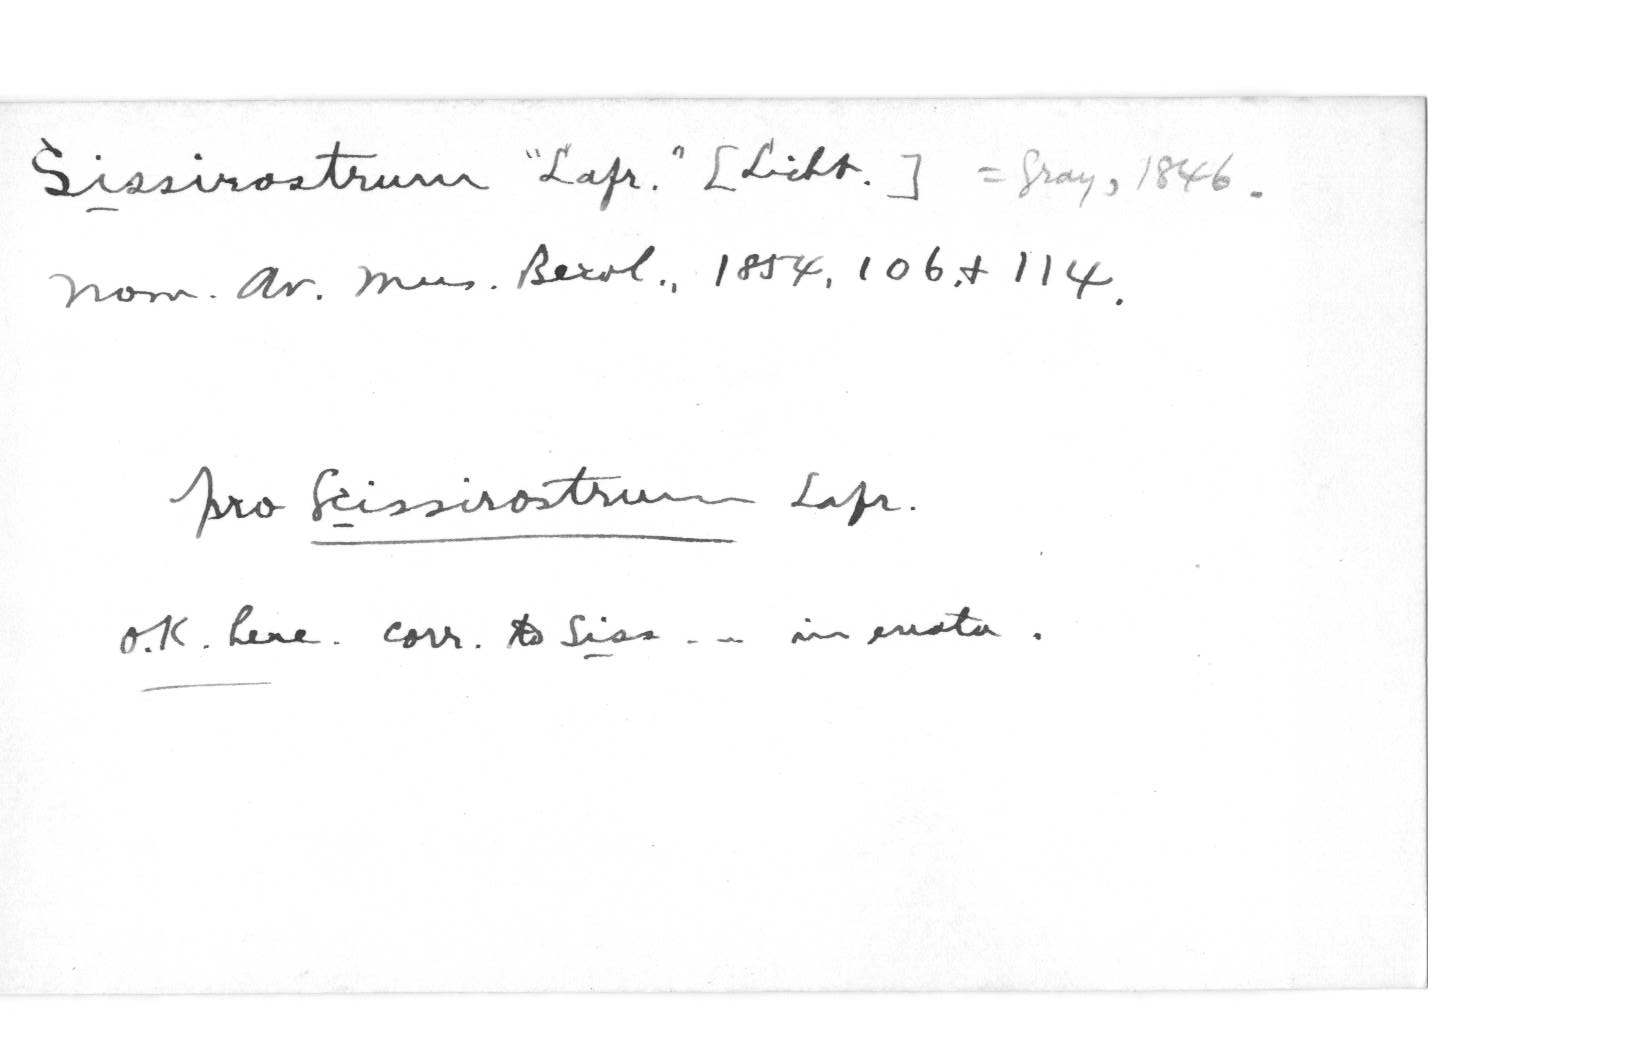 Sissirostrum "Lafr." [Licht.] = Gray, 1846.
Nom. Av. Mus. Berol., 1854, 106, + 114.
pro Scissirostrum Lafr.
O.K. here. corr. to Siss - - in errata.